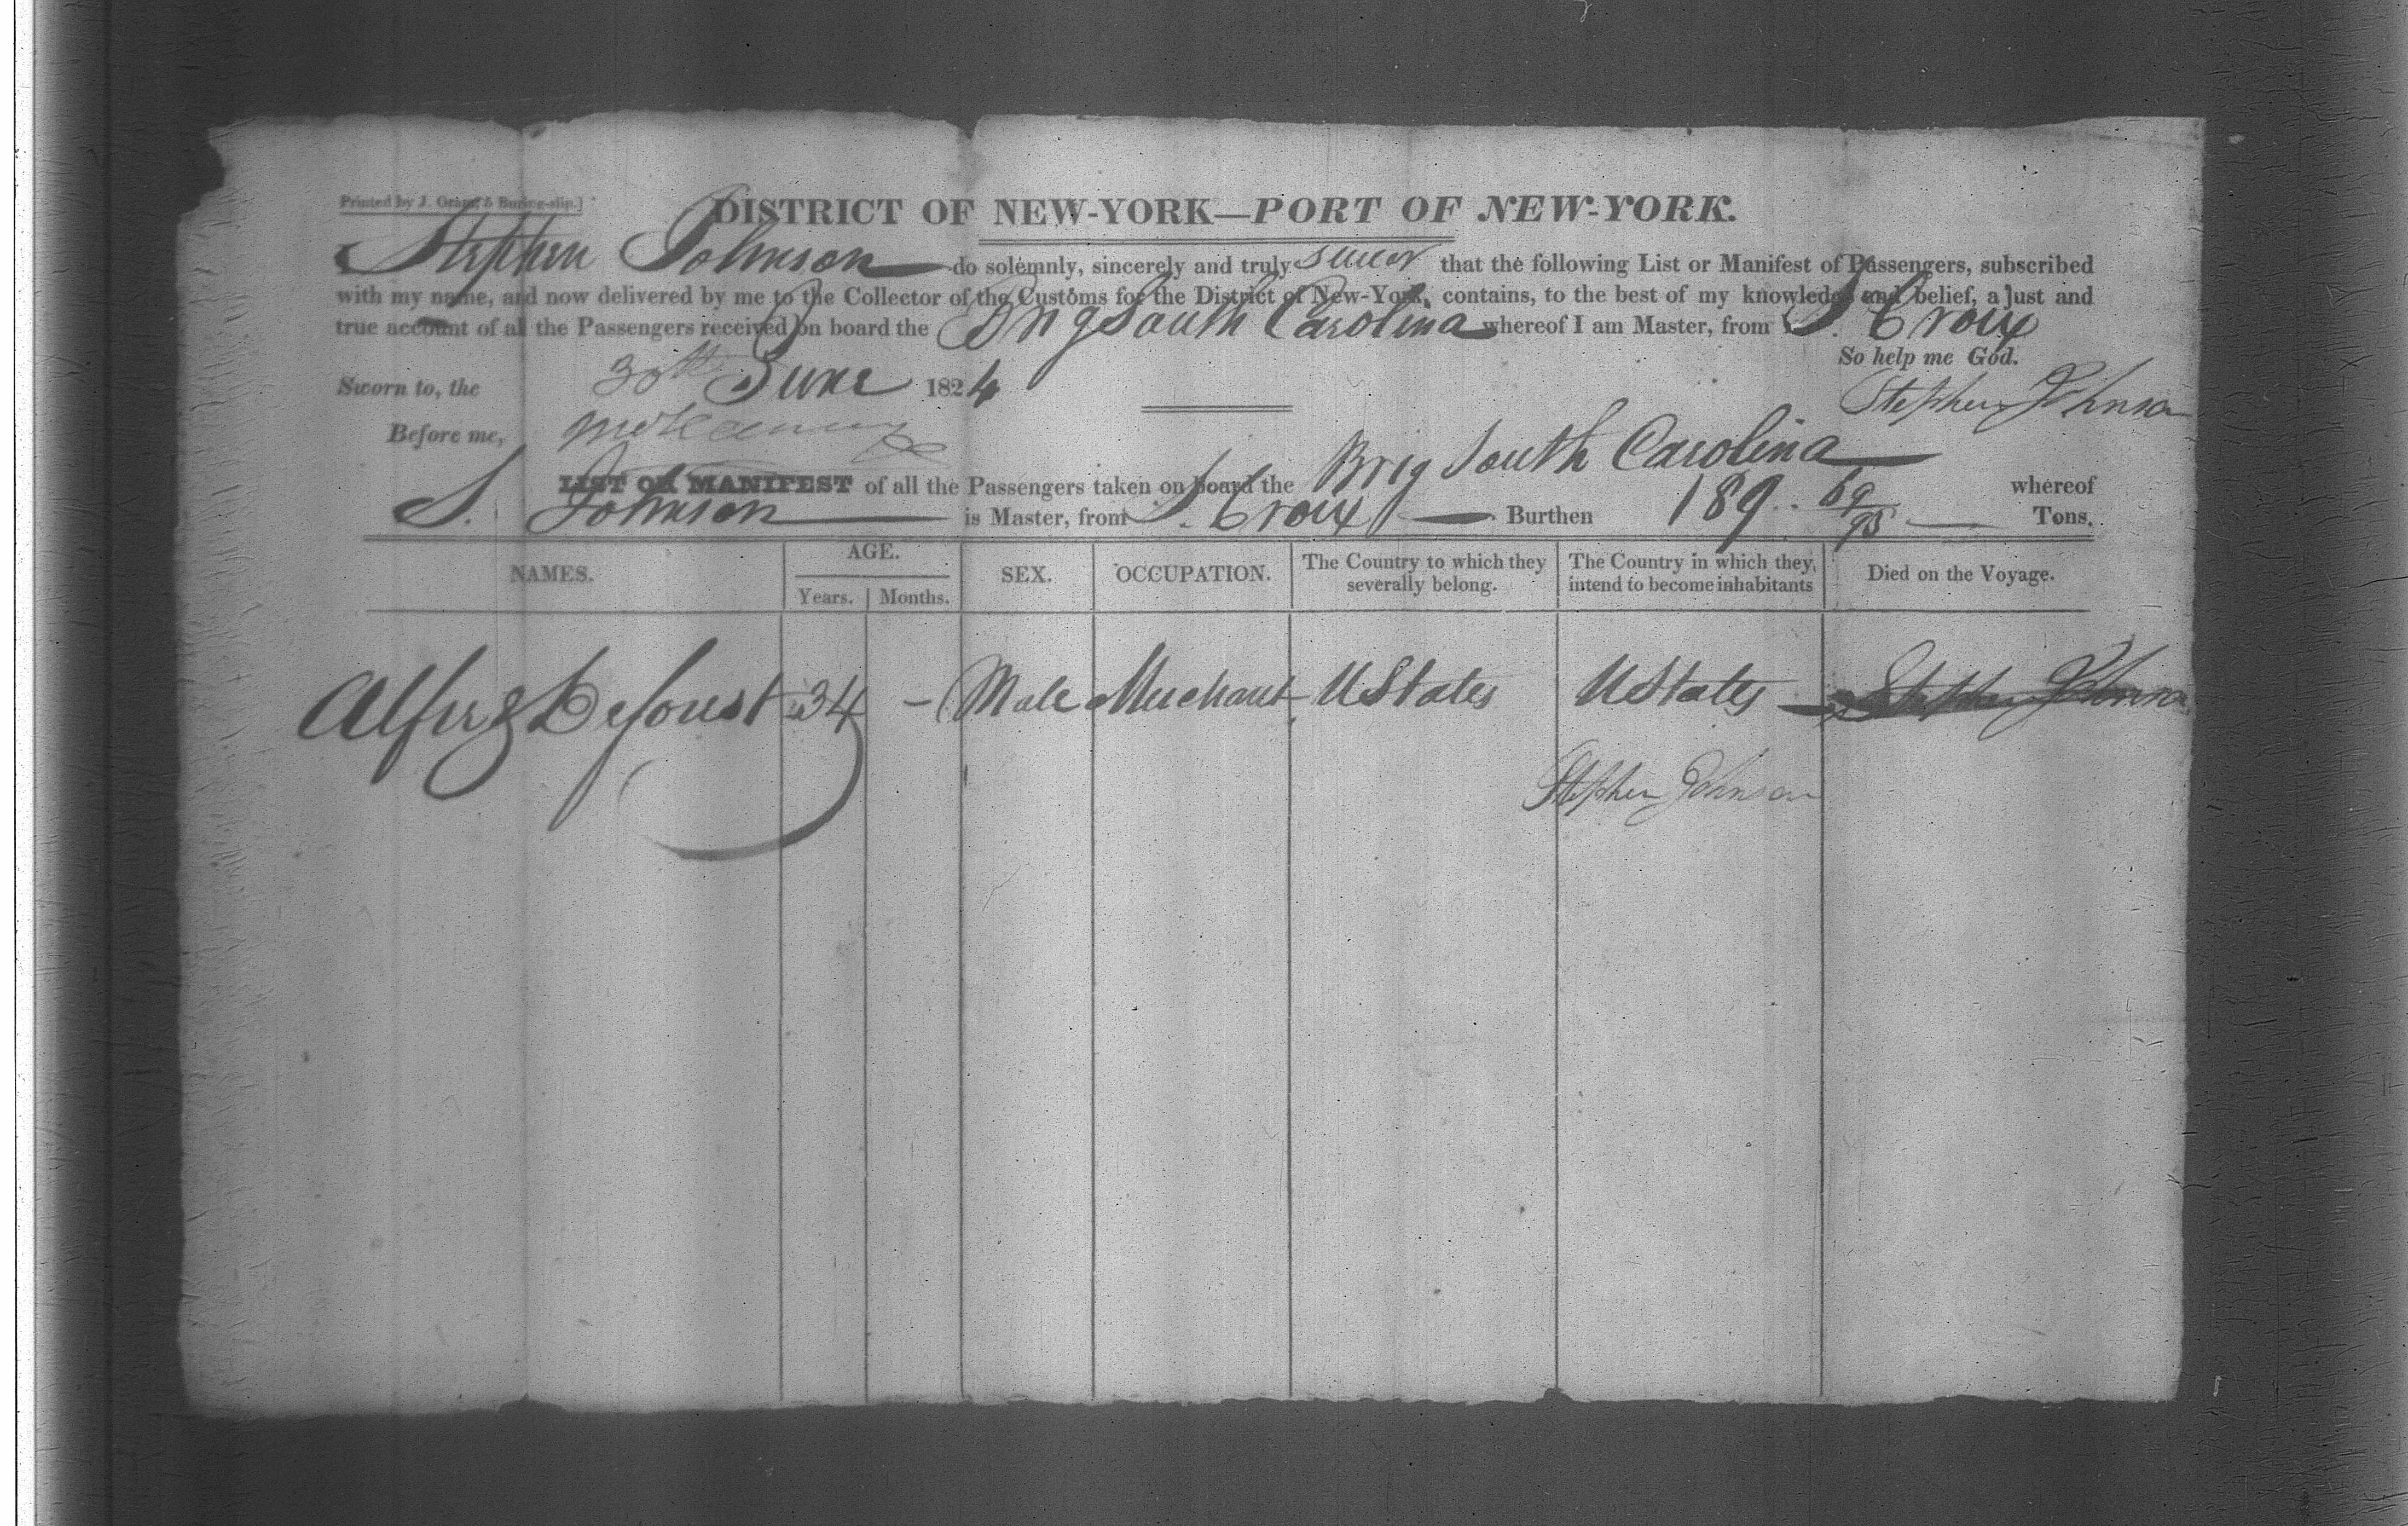 Printed by J. Oram, 5 Burling-slip.]
DISTRICT OF NEW-YORK—PORT OF NEW-YORK.
I Stephen Johnson do solemnly, sincerely and truly swear that the following List or Manifest of Passengers, subscribed
with my name, and now delivered by me to the Collector of the Customs for the District of New-York, contains, to the best of my knowledge and belief, a just and
true account of all the Passengers received on board the Brig South Carolina whereof I am Master, from S. Croix
So help me God.
Sworn to, the 30th June 1824
Stephen Johnson
Before me,
LIST OR MANIFEST of all the Passengers taken on board the Brig South Carolina whereof
S. Johnson is Master, from S. Croix Burthen 189 69/95 Tons.
NAMES. AGE. SEX. OCCUPATION. The Country to which they severally belong. The Country in which they intend to become inhabitants Died on the Voyage.
Years. Months.
Alfred Deforest 34 – Male Merchant UStates UStates Stephen Johnson
Stephen Johnson